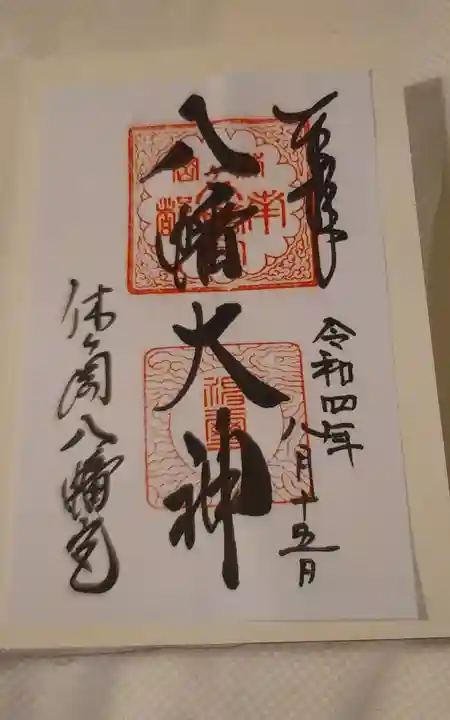 奉拝
令和四年
八月十五日
八幡大神
休ヶ岡八幡宮